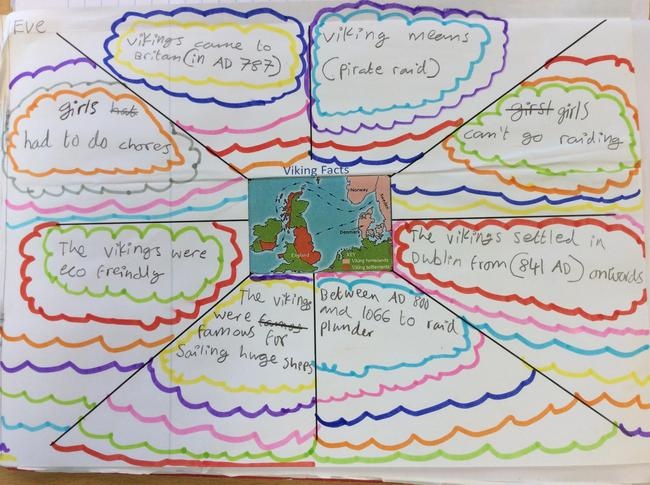 Eve
vikings came to
Britan (in AD 787)
viking means
(pirate raid)
girls hat
had to do chores
girst girls
can't go raiding
Viking Facts
Norway
Denmark
England
KEY
Viking homelands
Viking settlements
The vikings were
eco freindly
The vikings settled in
Dublin from (841 AD) onwards
The vikings
were
famous for
Sailing huge sheps
Between AD 800
and 1066 to raid
plunder